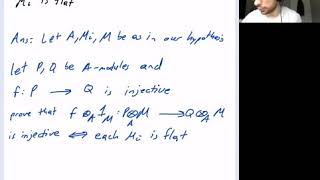 Mi is flat
Ans: Let A, Mi, M be as in our hypothesis
let P, Q be A-modules and
f: P → Q is injective
prove that f ⊗_A 1_M : P⊗_A M → Q⊗_A M
is injective ⟺ each Mi is flat